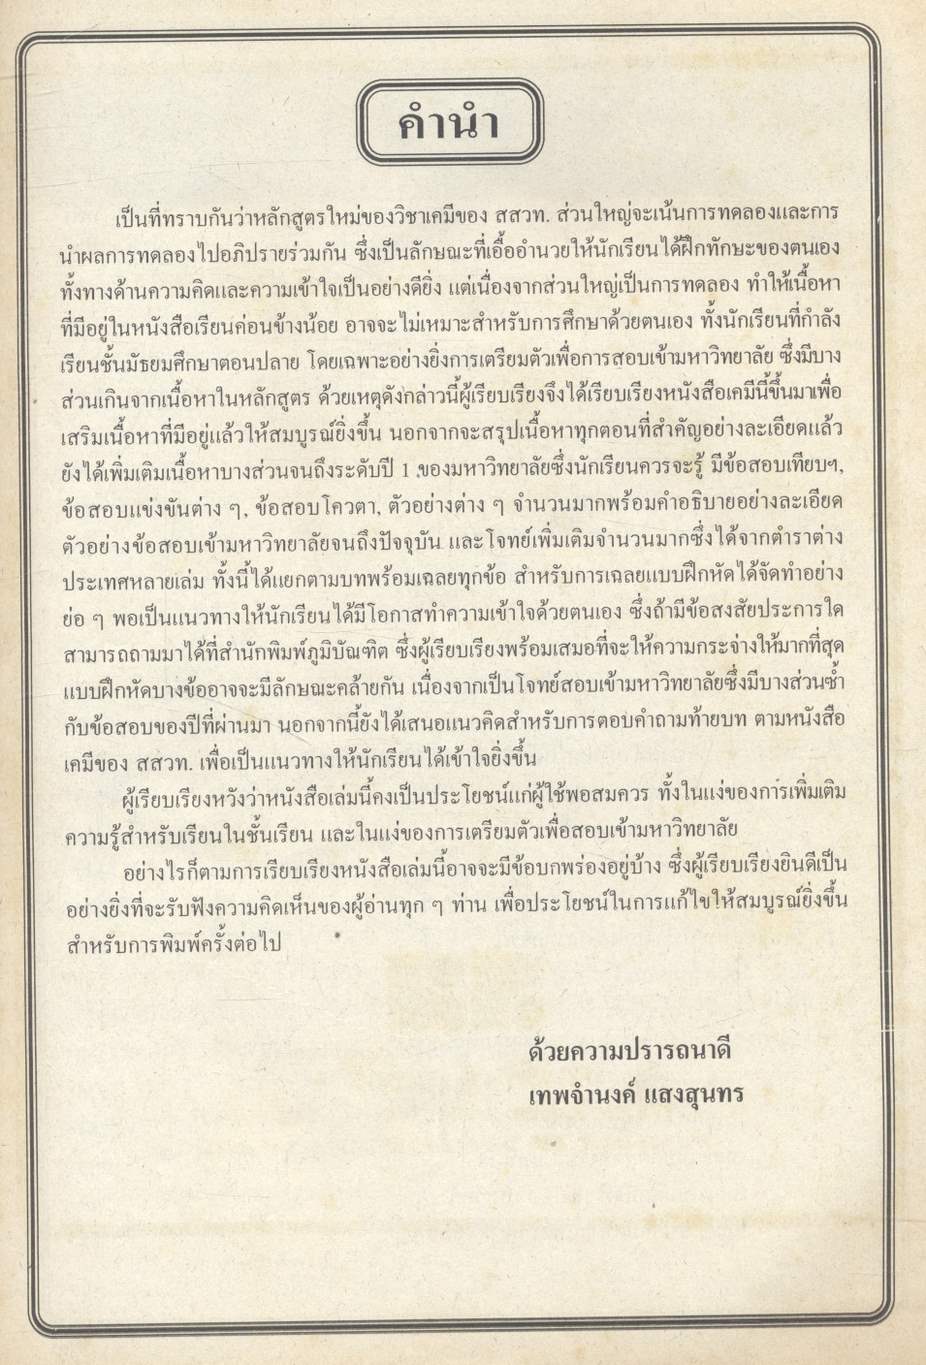 คำนำ
เป็นที่ทราบกันว่าหลักสูตรใหม่ของวิชาเคมีของ สสวท. ส่วนใหญ่จะเน้นการทดลองและการ
นำผลการทดลองไปอภิปรายร่วมกัน ซึ่งเป็นลักษณะที่เอื้ออำนวยให้นักเรียนได้ฝึกทักษะของตนเอง
ทั้งทางด้านความคิดและความเข้าใจเป็นอย่างดียิ่ง แต่เนื่องจากส่วนใหญ่เป็นการทดลอง ทำให้เนื้อหา
ที่มีอยู่ในหนังสือเรียนค่อนข้างน้อย อาจจะไม่เหมาะสำหรับการศึกษาด้วยตนเอง ทั้งนักเรียนที่กำลัง
เรียนชั้นมัธยมศึกษาตอนปลาย โดยเฉพาะอย่างยิ่งการเตรียมตัวเพื่อการสอบเข้ามหาวิทยาลัย ซึ่งมีบาง
ส่วนเกินจากเนื้อหาในหลักสูตร ด้วยเหตุดังกล่าวนี้ผู้เรียบเรียงจึงได้เรียบเรียงหนังสือเคมีนี้ขึ้นมาเพื่อ
เสริมเนื้อหาที่มีอยู่แล้วให้สมบูรณ์ยิ่งขึ้น นอกจากจะสรุปเนื้อหาทุกตอนที่สำคัญอย่างละเอียดแล้ว
ยังได้เพิ่มเติมเนื้อหาบางส่วนจนถึงระดับปี 1 ของมหาวิทยาลัยซึ่งนักเรียนควรจะรู้ มีข้อสอบเทียบฯ,
ข้อสอบแข่งขันต่าง ๆ, ข้อสอบโควตา, ตัวอย่างต่าง ๆ จำนวนมากพร้อมคำอธิบายอย่างละเอียด
ตัวอย่างข้อสอบเข้ามหาวิทยาลัยจนถึงปัจจุบัน และโจทย์เพิ่มเติมจำนวนมากซึ่งได้จากตำราต่าง
ประเทศหลายเล่ม ทั้งนี้ได้แยกตามบทพร้อมเฉลยทุกข้อ สำหรับการเฉลยแบบฝึกหัดได้จัดทำอย่าง
ย่อ ๆ พอเป็นแนวทางให้นักเรียนได้มีโอกาสทำความเข้าใจด้วยตนเอง ซึ่งถ้ามีข้อสงสัยประการใด
สามารถถามมาได้ที่สำนักพิมพ์ภูมิบัณฑิต ซึ่งผู้เรียบเรียงพร้อมเสมอที่จะให้ความกระจ่างให้มากที่สุด
แบบฝึกหัดบางข้ออาจจะมีลักษณะคล้ายกัน เนื่องจากเป็นโจทย์สอบเข้ามหาวิทยาลัยซึ่งมีบางส่วนซ้ำ
กับข้อสอบของปีที่ผ่านมา นอกจากนี้ยังได้เสนอแนวคิดสำหรับการตอบคำถามท้ายบท ตามหนังสือ
เคมีของ สสวท. เพื่อเป็นแนวทางให้นักเรียนได้เข้าใจยิ่งขึ้น
ผู้เรียบเรียงหวังว่าหนังสือเล่มนี้คงเป็นประโยชน์แก่ผู้ใช้พอสมควร ทั้งในแง่ของการเพิ่มเติม
ความรู้สำหรับเรียนในชั้นเรียน และในแง่ของการเตรียมตัวเพื่อสอบเข้ามหาวิทยาลัย
อย่างไรก็ตามการเรียบเรียงหนังสือเล่มนี้อาจจะมีข้อบกพร่องอยู่บ้าง ซึ่งผู้เรียบเรียงยินดีเป็น
อย่างยิ่งที่จะรับฟังความคิดเห็นของผู้อ่านทุก ๆ ท่าน เพื่อประโยชน์ในการแก้ไขให้สมบูรณ์ยิ่งขึ้น
สำหรับการพิมพ์ครั้งต่อไป
ด้วยความปรารถนาดี
เทพจำนงค์ แสงสุนทร